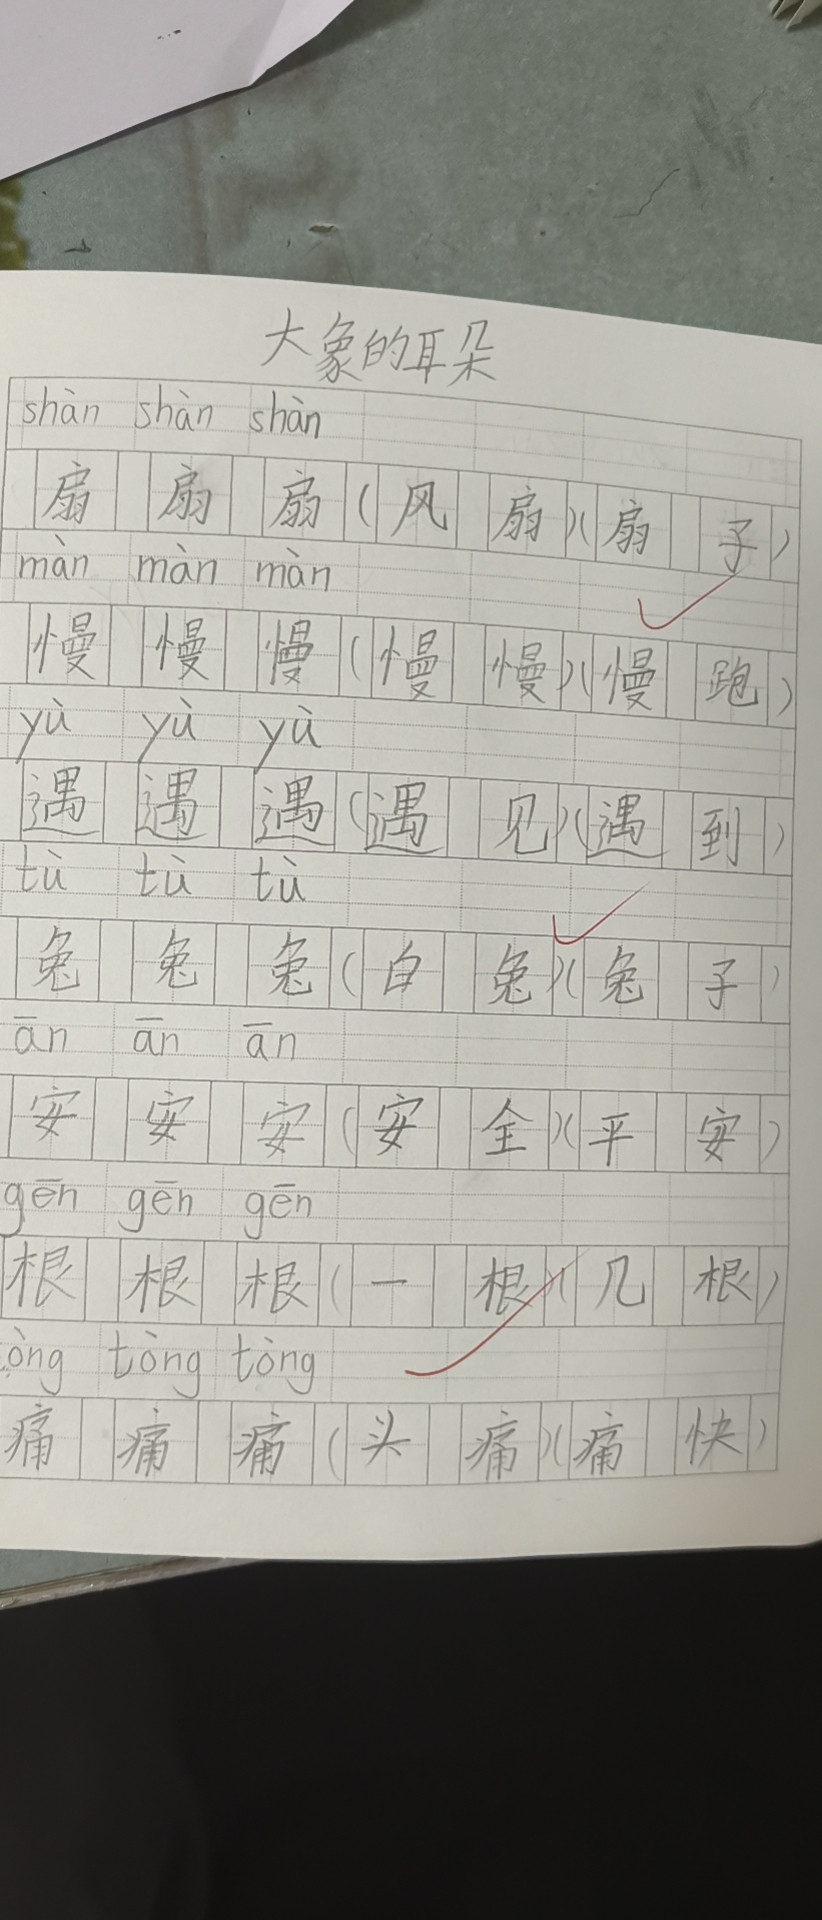 大象的耳朵
shàn shàn shàn
扇 扇 扇 (风 扇)(扇 子)
màn màn màn
慢 慢 慢 (慢 慢)(慢 跑)
yù yù yù
遇 遇 遇 (遇 见)(遇 到)
tù tù tù
兔 兔 兔 (白 兔)(兔 子)
ān ān ān
安 安 安 (安 全)(平 安)
gēn gēn gēn
根 根 根 (一 根)(几 根)
òng tòng tòng
痛 痛 痛 (头 痛)(痛 快)